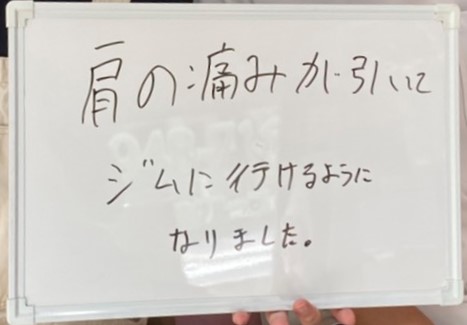 肩の痛みが引いて
ジムに行けるように
なりました。